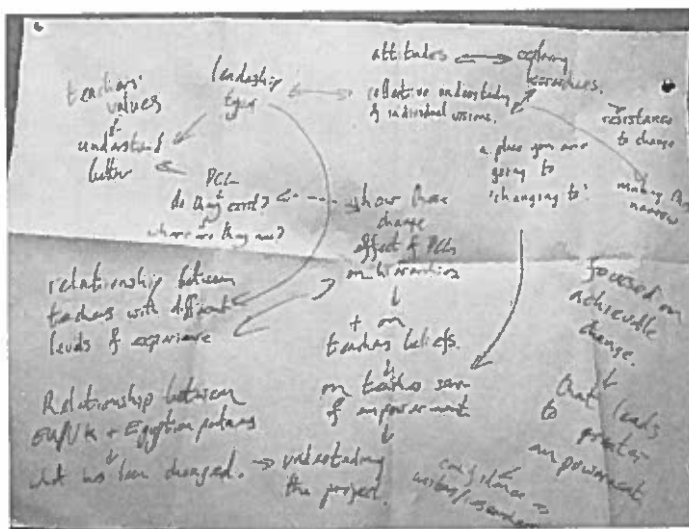 teachers'
values
understand
better
leadership
type
attitudes
exploring
ourselves.
collective understanding
of individual visions.
resistance
to change
a place you are
going to
'changing to'
making this
narrow
PCLs
do they exist?
where are they now?
how these
change
effect of PCLs
on hierarchies
+ on
teachers beliefs.
on teachers sense
of empowerment
understanding
the project.
relationship between
teachers with different
levels of experience
Relationship between
EU/UK + Egyptian partners
what has been changed.
focused on
achievable
change.
that leads
to
greater
empowerment
confidence as
writers/researchers